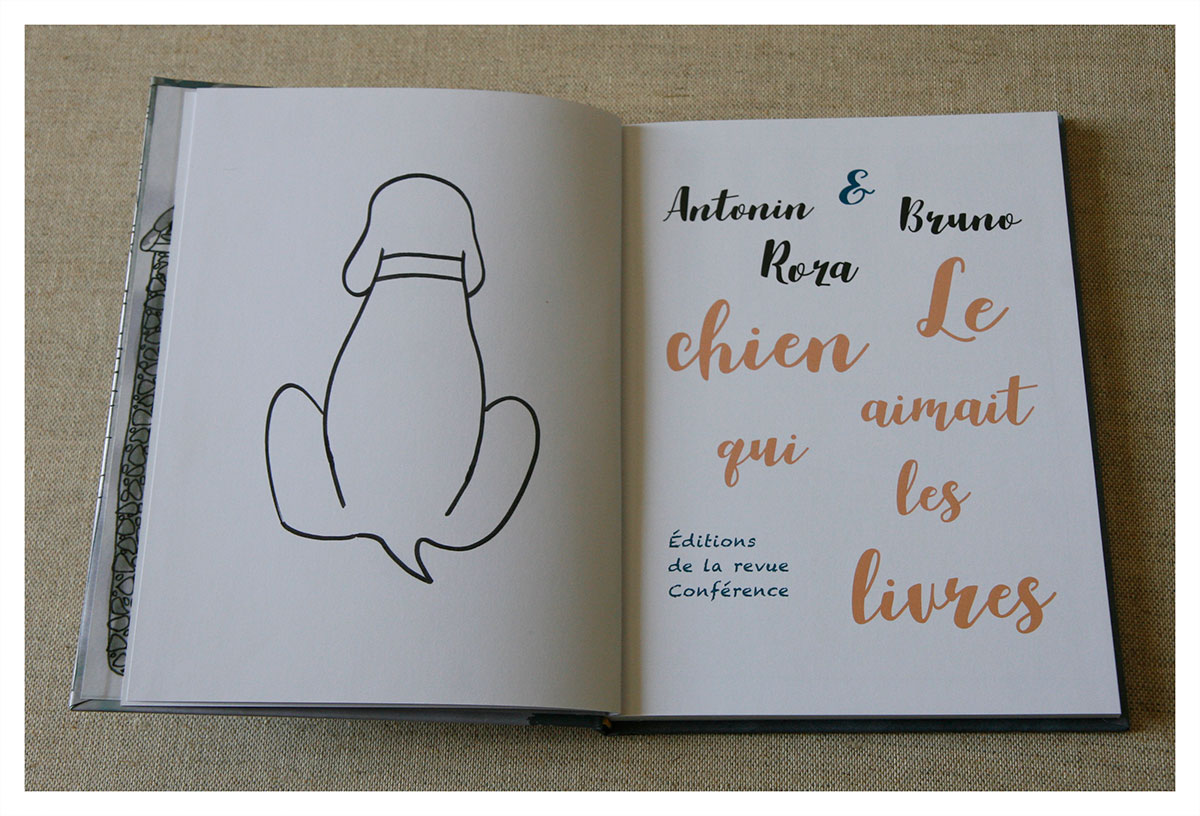 Antonin & Bruno
Roza
Le
chien
aimait
qui
les
livres
Éditions
de la revue
Conférence